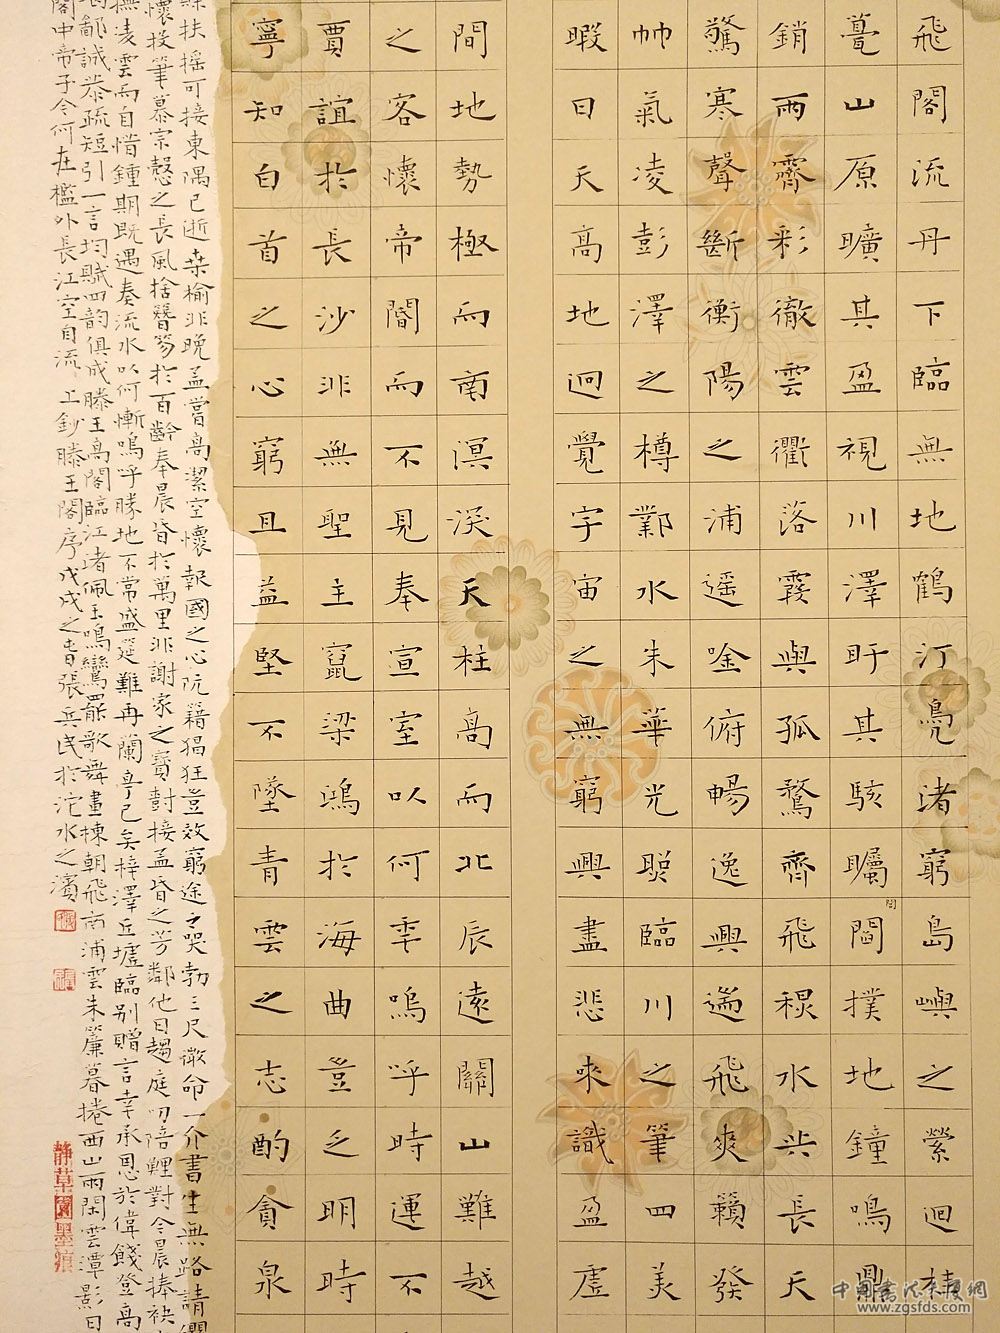 飛閣流丹下臨無地鶴汀鳧渚窮島嶼之縈迴桂
甍山原曠其盈視川澤盱其駭矚閭撲地鐘鳴鼎
閭
銷雨霽彩徹雲衢落霞與孤鶩齊飛秋水共長天
驚寒聲斷衡陽之浦遥吟俯暢逸興遄飛爽籟發
帅氣凌彭澤之樽鄴水朱華光照臨川之筆四美
暇日天高地迥覺宇宙之無窮興盡悲來識盈虛
間地勢極而南溟深天柱高而北辰遠關山難越
之客懷帝閽而不見奉宣室以何年嗚呼時運不
賈誼於長沙非無聖主竄梁鴻於海曲豈乏明時
寧知白首之心窮且益堅不墜青雲之志酌貪泉
賒扶搖可接東隅已逝桑榆非晚孟嘗高潔空懷報國之心阮籍猖狂豈效窮途之哭勃三尺微命一介書生無路請纓
懷投筆慕宗慤之長風捨簪笏於百齡奉晨昏於萬里非謝家之寶樹接孟氏之芳鄰他日趨庭叨陪鯉對今晨捧袂
撫凌雲而自惜鍾期既遇奏流水以何慚嗚呼勝地不常盛筵難再蘭亭已矣梓澤丘墟臨别贈言幸承恩於偉餞登高
鄙誠恭疏短引一言均賦四韵俱成滕王高閣臨江渚佩玉鳴鸞罷歌舞畫棟朝飛南浦雲朱簾暮捲西山雨閑雲潭影日
閣中帝子今何在檻外長江空自流 上鈔滕王閣序戊戌之春張兵民於沱水之濱
中国书法大厦网
www.zgsfds.com